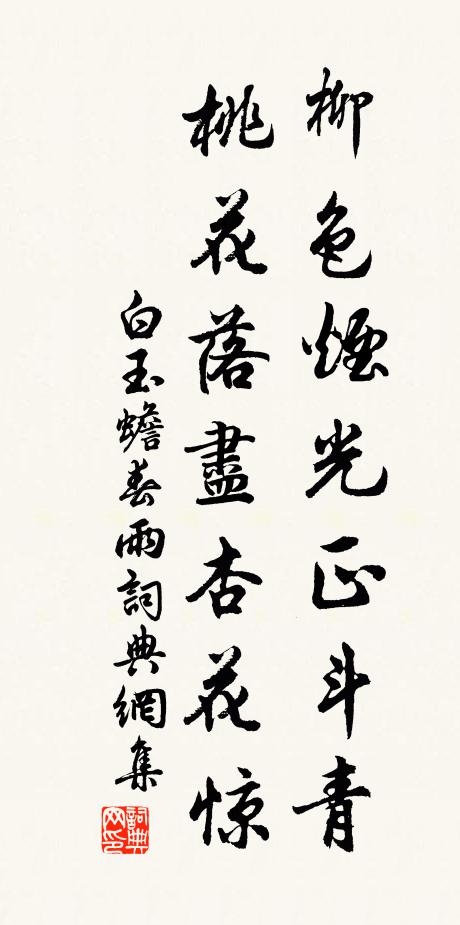 柳色煙光正斗青
桃花落盡杏花惊
白玉蟾春雨詞典網集
詞典网印